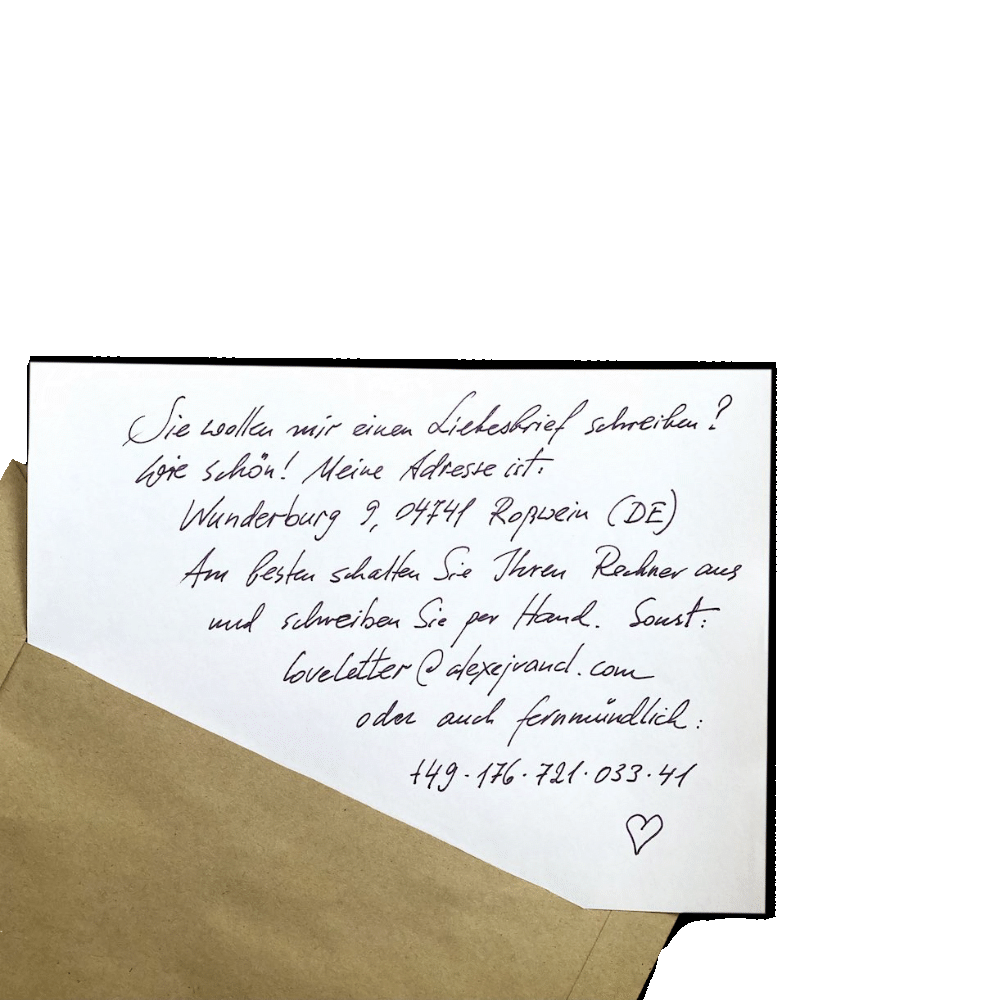 Sie wollen mir einen Liebesbrief schreiben?
Wie schön! Meine Adresse ist:
Wunderburg 9, 04741 Roßwein (DE)
Am besten schalten Sie Ihren Rechner aus
und schreiben Sie per Hand. Sonst:
loveletter@alexejvand.com
oder auch fernmündlich:
+49·176·721·033·41